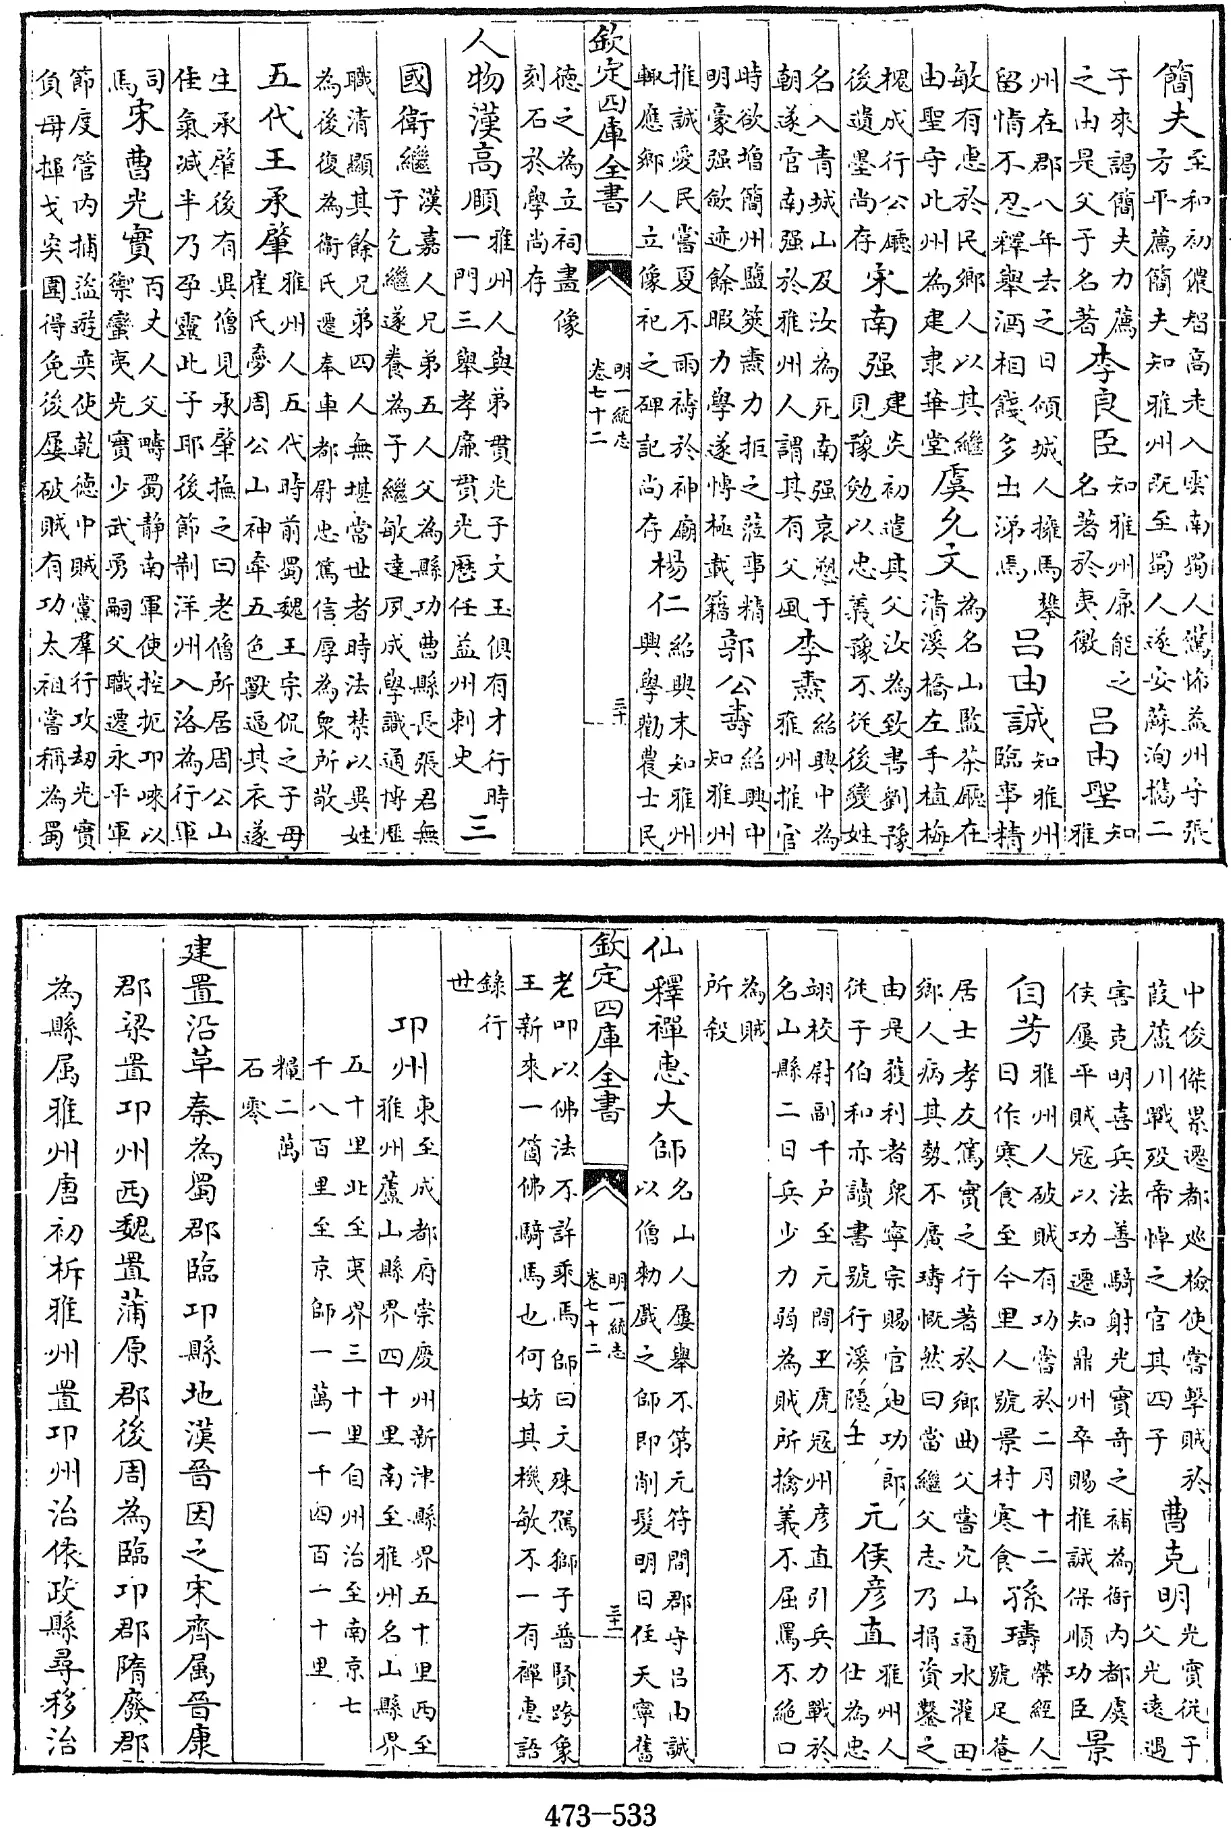 簡夫至和初儂智高走入雲南蜀人驚怖益州守張
方平薦簡夫知雅州既至蜀人遂安蘇洵攜二
子來謁簡夫力薦
之由是父子名著李良臣知雅州廉能之
名著於夷徼呂由聖知
雅
州在郡八年去之日傾城人擁馬攀
留情不忍釋舉酒相餞多出涕焉呂由誠知雅州
臨事精
敏有惠於民鄉人以其繼
由聖守此州為建隶華堂虞允文為名山監茶廳在
清溪橋左手植梅
槐成行公廳
後遺墨尚存宋南强建炎初遣其父汝為致書劉豫
見豫勉以忠義豫不從後變姓
名入青城山及汝為死南强哀愬于
朝遂官南强於雅州人謂其有父風李燾紹興中為
雅州推官
時欲增簡州鹽筴燾力拒之蒞事精
明豪强歛迹餘暇力學遂愽極載籍郭公夀紹興中
知雅州
推誠愛民嘗夏不雨禱於神廟
輒應鄉人立像祀之碑記尚存楊仁紹興末知雅州
興學勸農士民
欽定四庫全書
明一統志
卷七十二
三十
德之為立祠畫像
刻石於學尚存
人物漢高頤雅州人與弟貫光子文玉俱有才行時
一門三舉孝廉貫光歷任益州刺史三
國衛繼漢嘉人兄弟五人父為縣功曹縣長張君無
子乞繼遂養為子繼敏達夙成學識通博歷
職清顯其餘兄弟四人無堪當世者時法禁以異姓
為後復為衛氏遷奉車都尉忠篤信厚為衆所敬
五代王承肇雅州人五代時前蜀魏王宗侃之子母
崔氏夢周公山神牽五色獸逼其衣遂
生承肇後有異僧見承肇撫之曰老僧所居周公山
佳氣減半乃孕靈此子耶後節制洋州入洛為行軍
司
馬宋曹光實百丈人父疇蜀静南軍使控扼卭崍以
禦蠻夷光實少武勇嗣父職遷永平軍
節度管内捕盜遊奕使乾德中賊黨羣行攻刼光實
負母揮戈突圍得免後屢破賊有功太祖嘗稱為蜀
中俊傑累遷都廵檢使嘗擊賊於
葭蘆川戰殁帝悼之官其四子曹克明光實從子
父光遠遇
害克明喜兵法善騎射光實奇之補為衙内都虞
侯屢平賊冦以功遷知鼎州卒賜推誠保順功臣景
自芳雅州人破賊有功嘗於二月十二
日作寒食至今里人號景村寒食孫璹榮經人
號足菴
居士孝友篤實之行著於鄉曲父嘗穴山通水灌田
鄉人病其勢不廣璹慨然曰當繼父志乃捐資鑿之
由是獲利者衆寧宗賜官廸功郎
從子伯和亦讀書號行溪隱士元侯彦直雅州人
仕為忠
翊校尉副千户至元間王虎冦州彦直引兵力戰於
名山縣二日兵少力弱為賊所擒義不屈罵不絶口
為賊
所殺
仙釋禪惠大師名山人屢舉不第元符間郡守吕由誠
以僧勅戲之師即削髮明日住天寧舊
欽定四庫全書
明一統志
卷七十二
三十一
老叩以佛法不許乘馬師曰文殊駕獅子普賢跨象
王新來一箇佛騎馬也何妨其機敏不一有禪惠語
錄行
世
卭州東至成都府崇慶州新津縣界五十里西至
雅州蘆山縣界四十里南至雅州名山縣界
五十里北至夷界三十里自州治至南京七
千八百里至京師一萬一千四百一十里
糧二萬
石零
建置沿革秦為蜀郡臨卭縣地漢晉因之宋齊属晉康
郡梁置卭州西魏置蒲原郡後周為臨卭郡隋廢郡
為縣属雅州唐初析雅州置卭州治依政縣尋移治
473-533